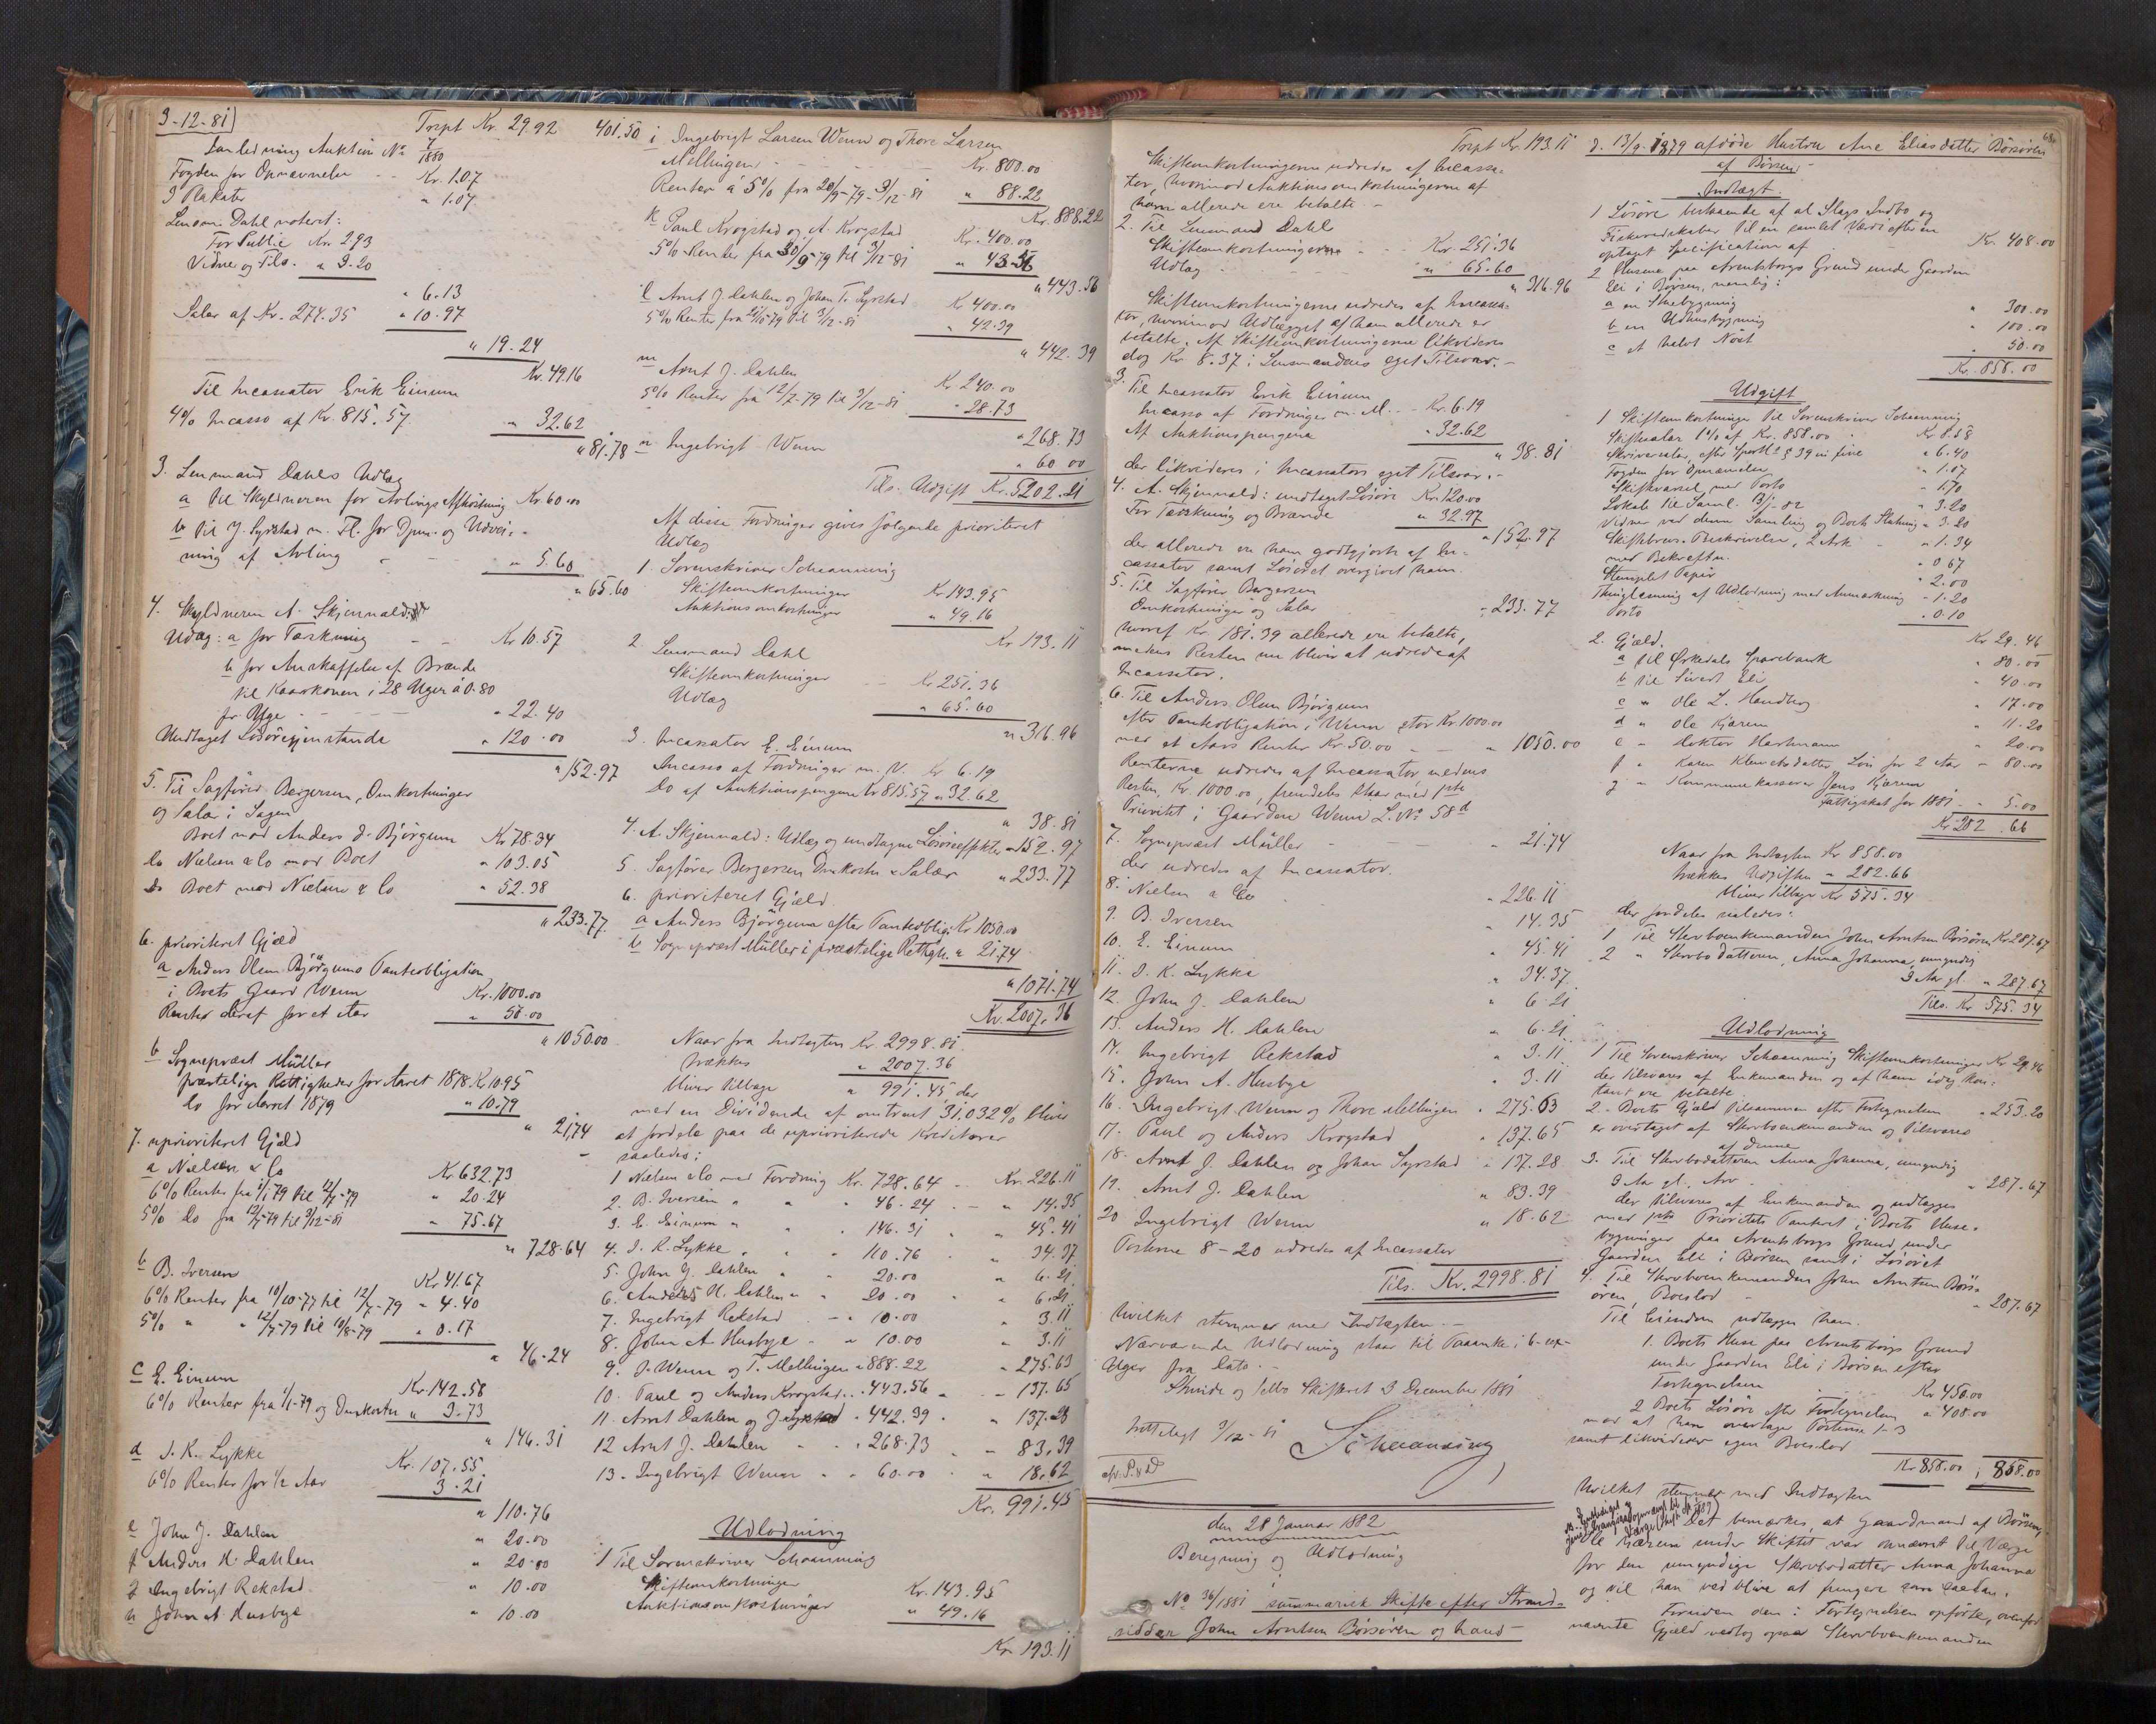 3-12-81
Trspt Kr. 29.92 401.50
Anledning Auktion No 7/1880
Fogden for Opnævnelse - - Kr. 1.07
3 Plakater " 1.07
Lensm. Dahl noteret:
For Publ. Kr. 2.93
Vidne og Tils. " 3.20
" 6.13
Salær af Kr. 274.35 " 10.97
" 19.24
Kr. 49.16
Til Incassator Erik Einum
4% Incasso af Kr. 815.57 " 32.62
" 81.78
3. Lensmand Dahls Udlæg
a til Skyldneren for Avlings Afhöstning Kr. 60.00
b til J. Syrstad m. Fl. for Opm. og Udvis-
ning af Avling - " 5.60
" 65.60
4. Skyldneren A. Skjenvald:
Udlæg: a for Tærskning - - Kr 10.57
b for Anskaffelse af Brænde
til Kaarkonen i 28 Uger á 0.80
pr. Uge - - - - " 22.40
Undtaget Lösöregjenstande " 120.00
" 152.97
5. Til Sagförer Bergersen, Omkostninger
og Salær i Sagen
Boet mod Anders O. Björgum Kr 78.34
do Nielsen & Co mod Boet " 103.05
do Boet mod Nielsen & Co " 52.38
" 233.77.
6. prioriteret Gjæld
a Anders Olsen Björgums Panteobligation
i Boets Gaard Wenn Kr. 1000.00
Renter deraf for et Aar " 50.00
" 1050.00
b Sognepræst Müller
præstelige Rettigheder for Aaret 1878 Kr 10.95
do for Aaret 1879 " 10.79
" 21,74
7. uprioriteret Gjæld
a Nielsen & Co Kr. 632.73
6% Renter fra 1/1 79 til 12/7-79 " 20.24
5% do fra 12/7-79 til 3/12-81 " 75.67
" 728.64
b B. Iversen Kr 41.67
6% Renter fra 10/10-77 til 12/7-79 " 4.40
5% " " 12/7-79 til 10/8-79 " 0.17
" 46.24
c E. Einum Kr. 142.58
6% Renter fra 1/1-79 og Omkostn " 3.73
" 146.31
d I. K. Lykke Kr. 107.55
6% Renter for 1/2 Aar 3.21
" 110.76
e John J. Dahlen " 20.00
f Anders H. Dahlen " 20.00
g Ingebrigt Rekstad " 10.00
h John A. Husbye " 10.00
i Ingebrigt Larsen Wenn og Thore Larsen
Mellingen - - - Kr. 800.00
Renter á 5% fra 20/9-79-3/12-81 " 88.22
Kr. 888.22
k Paul Krogstad og A. Krogstad Kr. 400.00
5% Renter fra 30/9-79 til 3/12-81 " 43.56
" 443.56
l Arnt J. Dahlen og Johan T. Syrstad Kr 400.00
5% Renter fra 21/10-79 til 3/12-81 " 42.39
" 442.39
m Arnt J. Dahlen Kr. 240.00
5% Renter fra 12/7-79 til 3/12-81 " 28.73
" 268.73
n Ingebrigt Wenn " 60 00
Tils. Udgift Kr. 5202.21
Af disse Fordringer gives folgende prioriteret
Udlæg
1. Sorenskriver Schaanning
Skifteomkostninger Kr 143.95
Auktionsomkostninger " 49.16
Kr 193.11
2. Lensmand Dahl
Skifteomkostninger - - Kr 251.36
Udlæg " 65.60
" 316.96
3. Incassator E. Einum
Incasso af Fordringer m. V. Kr 6.19
do af Auktionspengene Kr 815.57 " 32.62
" 38.81
4. A. Skjenvald: Udlæg og undtagne Lösöreeffekter " 152.97
5. Sagförer Bergersen Omkostn & Salær " 233.77
6. prioriteret Gjæld
a Anders Björgum efter Panteoblig: Kr. 1050.00
b Sognepræst Müller i præstelige Rettigh. " 21.74
" 1071.74
Kr. 2007.36
Naar fra Indtægten Kr. 2998.81
trækkes " 2007.36
bliver tilbage " 991.45, der
med en Dividende af omtrent 31.032% bliver
at fordele paa de uprioriterede Kreditorer
saaledes:
1 Nielsen & Co med Fordring Kr. 728.64 - Kr. 226.11
2. B. Iversen " " " 46.24 - " 14.35
3. E. Einum " " 146.31 " 45.41
4. I. K. Lykke " " 110.76 " 34.37
5. John J. Dahlen " " 20.00 " 6.21
6. Anders H. Dahlen " " 20.00 " 6.21
7. Ingebrigt Rekstad - " 10.00 " 3.11
8. John A. Husbye - " 10.00 " 3.11
9. I. Wenn og T. Mellingen " 888.22 " 275.63
10. Paul og Anders Krogstad " 443.56 - " 137.65
11. Arnt Dahlen og J. Syrstad " 442.39 " 137.28
12 Arnt J. Dahlen " 268.73 - " 83.39
13. Ingebrigt Wenn " " 60.00 " 18.62
Kr. 991.45
Udlodning
1 Til Sorenskriver Schaanning
Skifteomkostninger Kr. 143.95
Auktionsomkostninger " 49.16
Kr 193.11
Trspt Kr. 193.11
Skifteomkostningerne udredes af Incassa-
tor, hvorimod Auktionsomkostningerne af
ham allerede ere betalte -
2. Til Lensmand Dahl
Skifteomkostningerne - - Kr. 251.36
Udlæg - " 65.60
" 316.96
Skifteomkostningerne udredes af Incassa-
tor, hvorimod Udlægget af ham allerede er
betalte. Af Skifteomkostningerne likvideres
dog Kr. 8.37 i Lensmandens eget Tilsvar. -
3. Til Incassator Erik Einum
Incasso af Fordringer m. M. - Kr. 6.19
Af Auktionspengene " 32.62
" 38.81
der likvideres i Incassators eget Tilsvar. -
4. A. Skjenvald: undtaget Lösöre Kr. 120.00
For Tærskning og Brænde " 32.97
" 152.97
der allerede ere ham godtgjorte af In-
cassator samt Lösöret overgivet ham.
5. Til Sagförer Bergersen
Omkostninger og Salær - 233.77
hvoraf Kr. 181.39 allerede ere betalte,
medens Resten nu bliver at udrede af
Incassator.
6. Til Anders Olsen Björgum
efter Panteobligation i Wenn stor Kr. 1000.00
med et Aars Renter Kr. 50.00 - - " 1050.00
Renterne udredes af Incassator medens
Resten, Kr. 1000.00, fremdeles staar med 1ste
Prioritet i Gaarden Wenn L. No 58 d
7. Sognepræst Müller - - - " 21.74
der udredes af Incassator.
8. Nielsen & Co " 226.11
9. B. Iversen " 14.35
10. E. Einum " 45.41
11. I. K. Lykke " 34.37
12. John J. Dahlen " 6.21
13. Anders H. Dahlen " 6.21
14. Ingebrigt Rekstad " 3.11
15. John A. Husbye " 3.11
16. Ingebrigt Wenn og Thore Mellingen " 275.63
17. Paul og Anders Krogstad " 137.65
18. Arnt J. Dahlen og Johan Syrstad " 137.28
19. Arnt J. Dahlen " 83.39
20 Ingebrigt Wenn " 18.62
Posterne 8-20 udredes af Incassator
Tils. Kr. 2998.81
hvilket stemmer med Indtægten. -
Nærværende Udlodning staar til Paaanke i 6 -
Uger fra Dato. -
Strinde og Selbo Skifteret 3 December 1881
fremlagt 3/12-81
Schaanning
den 28 Januar 1882
Beregning og Udlodning
i
No 36/1881 summarisk Skifte efter Strand-
sidder John Arntsen Börsören og hans
d. 13/9-1879 afdöde Hustru Ane Eliasdatter Börsören
af Börsen:
Indtægt.
1 Lösöre bestaaende af al Slags Indbo og
Fiskeredskaber til en samlet Værdi efter en
optaget Specification af - Kr. 408.00
2 Husene paa Arentsborgs Grund under Gaarden
Eli i Börsen, nemlig:
a en Stuebygning " 300.00
b en Udhusbygning " 100.00
c et halvt Nöst " 50.00
Kr. 858.00
Udgift
1 Skifteomkostninger til Sorenskriver Schaanning
Skiftesalær 1% af Kr. 858.00 Kr 8.58
Skriversalær, efter Sportl. § 39 in fine " 6.40
Fogden for Opnævnelse " 1.07
Skiftevarsel med Porto - 1.70
Lokale til Saml. 13/1-82 " 3.20
Vidner ved denne Samling og Boets Slutning " 3.20
Skiftebrevs Beskrivelse, 2 Ark " 1.34
med Bekræftn. " 0 67
Stemplet Papir " 2.00
Thinglæsning af Udlodning med Anmærkning - 1.20
Porto " 0.10
Kr 29.46
2. Gjæld.
a til Örkedals Sparebank " 80.00
b til Sivert Eli " 40.00
c " Ole L. Handberg " 17.00
d " Ole Kjærem " 11.20
e " Doktor Hartmann " 20.00
f " Karen Klemetsdatter, Lön for 2 Aar - 80.00
g " Kommunekasserer Jens Kjærem
Fattigskat for 1881 - " 5.00
Kr. 282.66
Naar fra Indtægten Kr 858.00
trækkes Udgiften " 282.66
bliver tilbage Kr 575.34
der fordeles saaledes:
1 Til Stervboenkemanden John Arntsen Börsören Kr 287.67
2 " Stervbodatteren, Anna Johanna, umyndig
3 Aar gl. " 287.67
Tils. Kr 575.34
Udlodning
1 Til Sorenskriver Schaanning Skifteomkostninger Kr. 29.46
der tilsvares af Enkemanden og af ham idag kon-
tant ere betalte
2. Boets Gjæld tilsammen efter Fortegnelsen " 253.20
er overtaget af Stervboenkemanden og tilsvares
af denne
3. Til Stervbodatteren Anna Johanna, umyndig
3 Aar gl., Arv - " 287.67
der tilsvares af Enkemanden og udlægges
med 1ste Prioritets Panteret i Boets Huse-
bygninger paa Arentsborgs Grund under
Gaarden Eli i Börsen samt i Lösöret
4. Til Stervboenkemanden John Arntsen Börs-
ören, Boeslod - " 287.67
Til Eiendom udlægges ham.
1. Boets Huse paa Arentsborgs Grund
under Gaarden Eli i Börsen efter
Fortegnelsen Kr 450.00
2 Boets Lösöre efter Fortegnelsen " 408.00
mod at han overtager Posterne 1-3
samt likviderer egen Boeslod
Kr 858.00 ; 858.00
hvilket stemmer med Indtægten
Det bemærkes, at Gaardmand af Börsen,
Ole Kjærem under Skiftet var opnævnt til Værge
for den umyndige Stervbodatter Anna Johanna
og vil han vedblive at fungere som saadan.
Foruden den i Fortegnelsen opförte, ovenfor
nævnte Gjæld vedtog ogsaa Stervboenkemanden